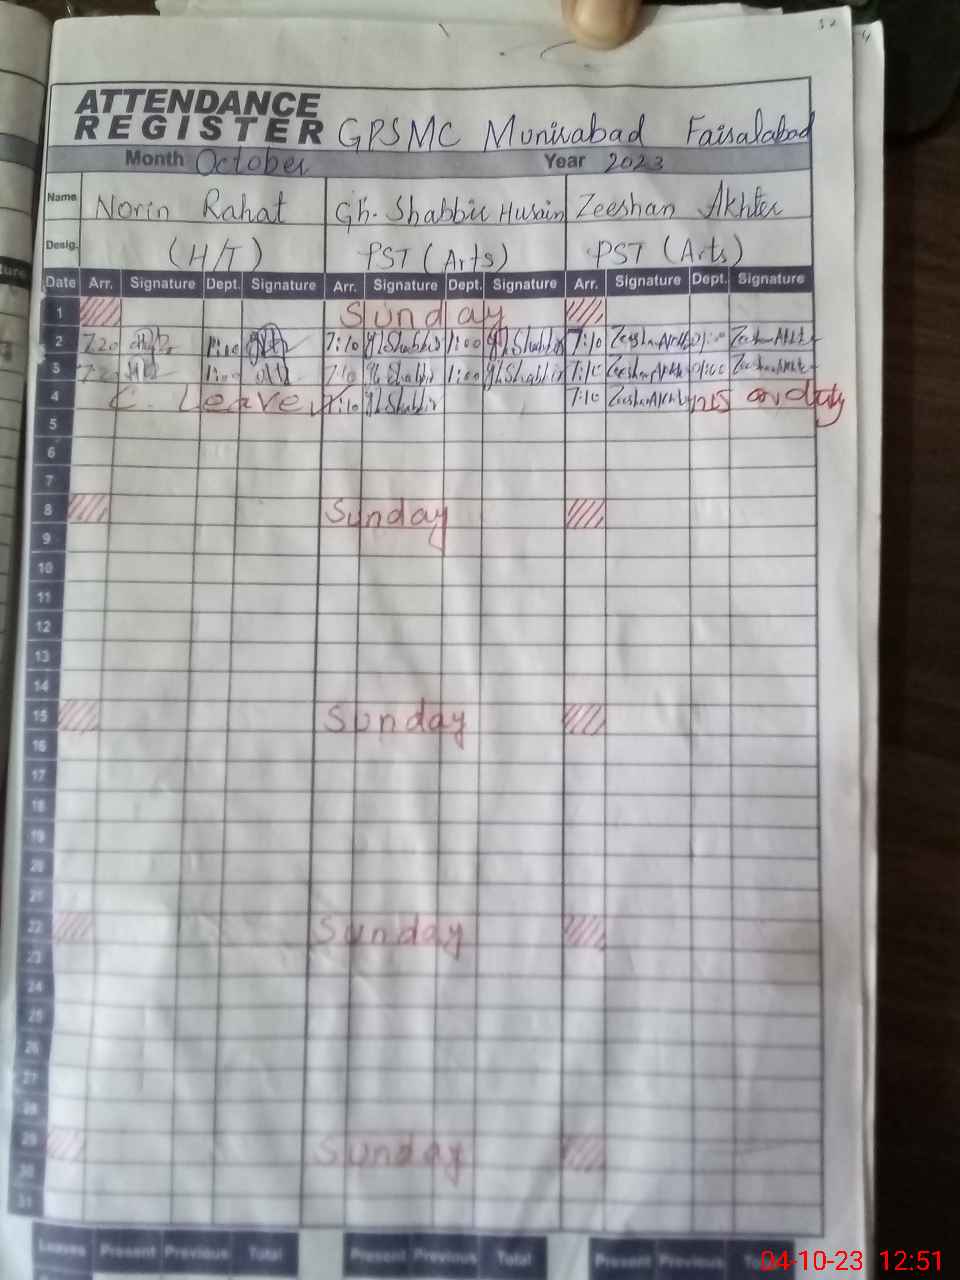 ATTENDANCE
REGISTER GPSMC Munirabad Faisalabad
Month October Year 2023
Name Norin Rahat Gh. Shabbir Husain Zeeshan Akhter
Desig. (H/T) PST (Arts) PST (Arts)
Date Arr. Signature Dept. Signature Arr. Signature Dept. Signature Arr. Signature Dept. Signature
1 Sunday
2 7:20 1:00 7:10 gh.Shabbir 1:00 gh.Shabbir 7:10 Zeeshan Akhter 01:00 Zeeshan Akhter
3 7:20 1:00 7:10 gh.Shabbir 1:00 gh.Shabbir 7:10 Zeeshan Akhter 01:00 Zeeshan Akhter
4 C. Leave 7:10 gh.Shabbir 7:10 Zeeshan Akhter on duty
5
6
7
8 Sunday
9
10
11
12
13
14
15 Sunday
16
17
18
19
20
21
22 Sunday
23
24
25
26
27
28
29 Sunday
30
31
Leaves Present Previous Total Present Previous Total Present Previous
04-10-23 12:51